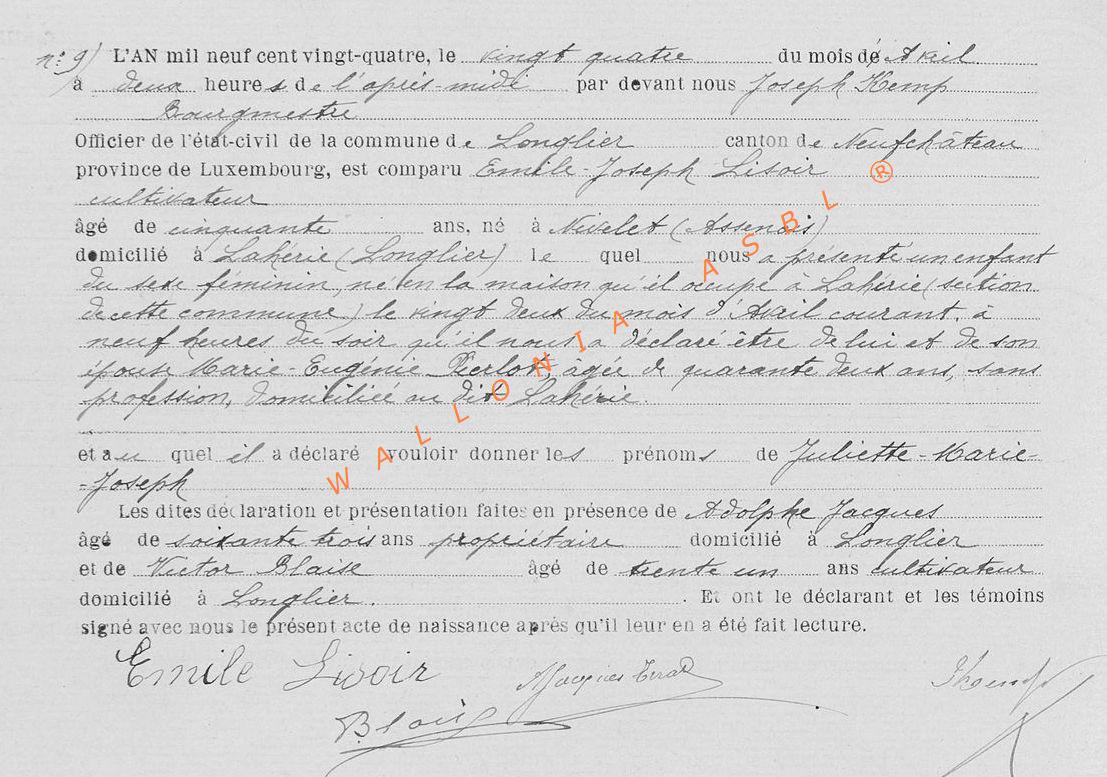 n° 9) L'AN mil neuf cent vingt-quatre, le vingt quatre du mois de Avril
à deux heures de l'après-midi par devant nous Joseph Hemp
Bourgmestre
Officier de l'état-civil de la commune de Longlier canton de Neufchâteau
province de Luxembourg, est comparu Emile-Joseph Lisoir
cultivateur
âgé de cinquante ans, né à Nivelet (Assenois)
domicilié à Lahérie (Longlier) le quel nous a présenté un enfant
du sexe féminin, né en la maison qu'il occupe à Lahérie (section
de cette commune) le vingt deux du mois d'Avril courant, à
neuf heures du soir qu'il nous a déclaré être de lui et de son
épouse Marie-Eugénie Pierlot, âgée de quarante deux ans, sans
profession, domiciliée au dit Lahérie.
et au quel il a déclaré vouloir donner les prénoms de Juliette-Marie-
-Joseph
Les dites déclaration et présentation faites en présence de Adolphe Jacques
âgé de soixante trois ans propriétaire domicilié à Longlier
et de Victor Blaise âgé de trente un ans cultivateur
domicilié à Longlier. . Et ont le déclarant et les témoins
signé avec nous le présent acte de naissance après qu'il leur en a été fait lecture.
Emile Lisoir AJacques
Blaise
WALLONIA ASBL ®